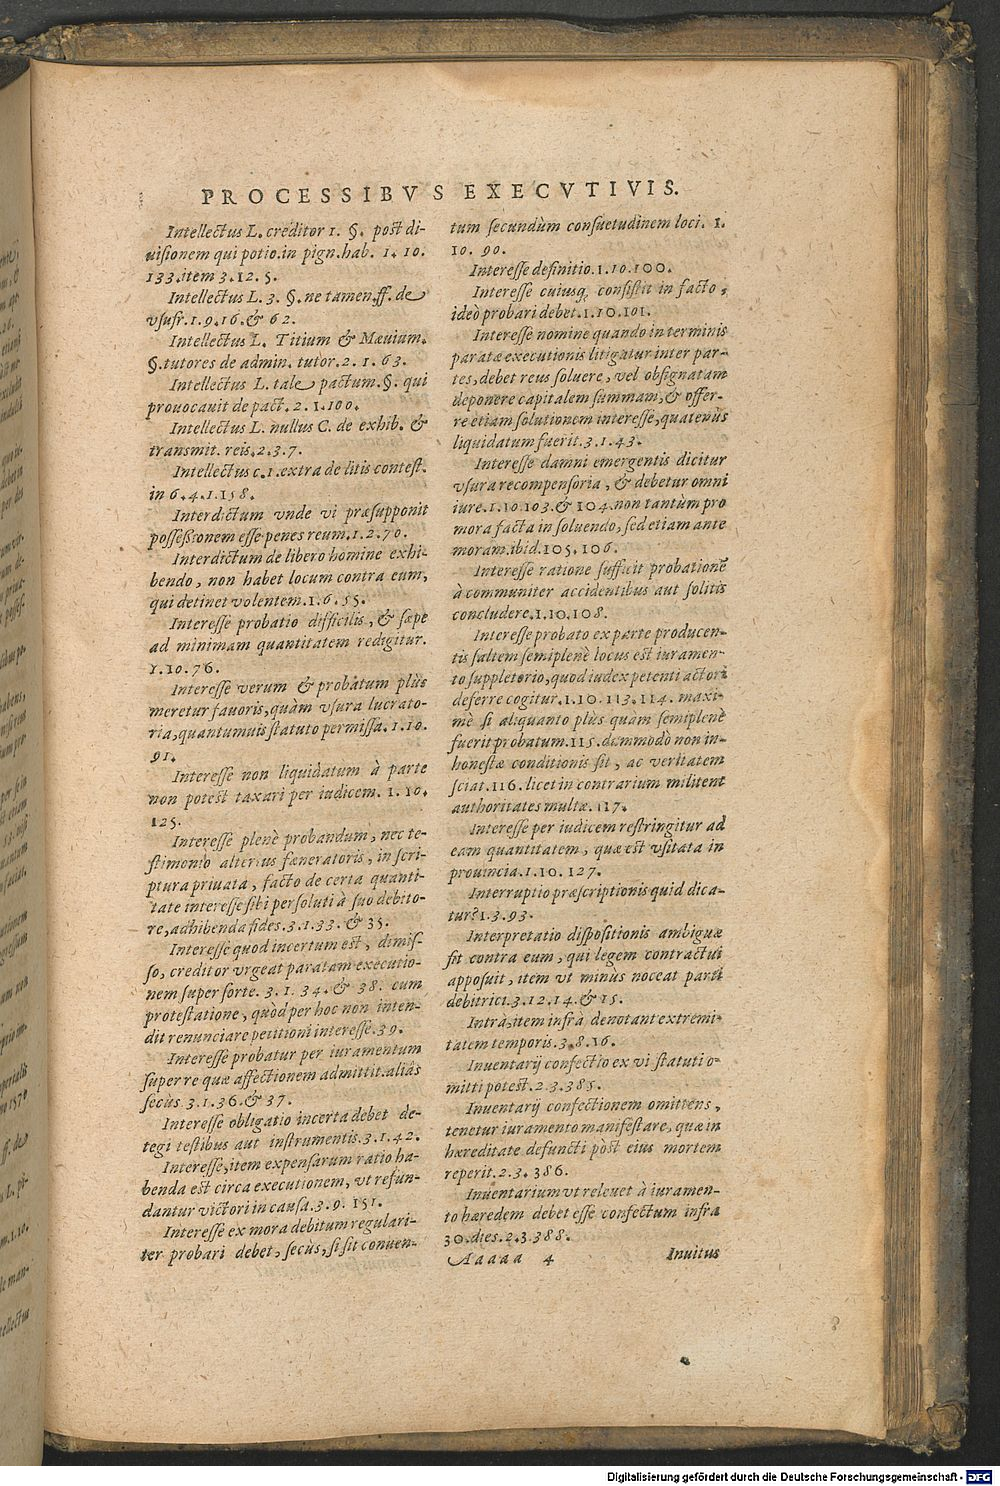 PROCESSIBVS EXECVTIVIS.
Intellectus L. creditor 1. §. post di-
uisionem qui potio. in pign. hab. 1. 10.
133. item 3. 12. 5.
Intellectus L. 3. §. ne tamen. ff. de
vsufr. 1. 9. 16. & 62.
Intellectus L. Titium & Mæuiam.
§. tutores de admin. tutor. 2. 1. 63.
Intellectus L. tale pactum. §. qui
prouocauit de pact. 2. 1. 100.
Intellectus L. nullus C. de exhib. &
transmit. reis. 2. 3. 7.
Intellectus c. 1. extra de litis contest.
in 6. 4. 1. 158.
Interdictum vnde vi præsupponit
possessionem esse penes reum. 1. 2. 70.
Interdictum de libero homine exhi-
bendo, non habet locum contra eum,
qui detinet volentem. 1. 6. 55.
Interesse probatio difficilis, & sæpe
ad minimam quantitatem redigitur.
1. 10. 76.
Interesse verum & probatum plùs
meretur fauoris, quàm vsura lucrato-
ria, quantumuis statuto permissa. 1. 10.
91.
Interesse non liquidatum à parte
non potest taxari per iudicem. 1. 10.
125.
Interesse plenè probandum, nec te-
stimonio alterius fœneratoris, in scri-
ptura priuata, facto de certa quanti-
tate interesse sibi persoluti à suo debito-
re, adhibenda fides. 3. 1. 33. & 35.
Interesse quod incertum est, dimis-
so, creditor vrgeat paratam executio-
nem super sorte. 3. 1. 34. & 38. cum
protestatione, quòd per hoc non inten-
dit renunciare petitioni interesse. 39.
Interesse probatur per iuramentum
super re quæ affectionem admittit. aliàs
secùs 3. 1. 36. & 37.
Interesse obligatio incerta debet de-
tegi testibus aut instrumentis. 3. 1. 42.
Interesse, item expensarum ratio ha-
benda est circa executionem, vt refun-
dantur victori in causa. 3. 9. 151.
Interesse ex mora debitum regulari-
ter probari debet, secùs, si sit conuen-
tum secundùm consuetudinem loci. 1.
10. 90.
Interesse definitio. 1. 10. 100.
Interesse cuiusq; consistit in facto,
ideò probari debet. 1. 10. 101.
Interesse nomine quando in terminis
paratæ executionis litigatur inter par-
tes, debet reus soluere, vel obsignatam
deponere capitalem summam, & offer-
re etiam solutionem interesse, quatenùs
liquidatum fuerit. 3. 1. 43.
Interesse damni emergentis dicitur
vsura recompensoria, & debetur omni
iure. 1. 10. 103. & 104. non tantùm pro
mora facta in soluendo, sed etiam ante
moram. ibid. 105. 106.
Interesse ratione sufficit probationẽ
à communiter accidentibus aut solitis
concludere. 1. 10. 108.
Interesse probato ex parte producen-
tis saltem semiplenè locus est iuramen-
to suppletorio, quod iudex petenti actori
deferre cogitur. 1. 10. 113. 114. maxi-
mè si aliquanto plùs quàm semiplenè
fuerit probatum. 115. dummodò non in-
honestæ conditionis sit, ac veritatem
sciat. 116. licet in contrarium militent
authoritates multæ. 117.
Interesse per iudicem restringitur ad
eam quantitatem, quæ est vsitata in
prouincia. 1. 10. 127.
Interruptio præscriptionis quid dica-
tur? 1. 3. 93.
Interpretatio dispositionis ambiguæ
sit contra eum, qui legem contractui
apposuit, item vt minus noceat parti
debitrici. 3. 12. 14. & 15.
Intrà, item infrà denotant extremi-
tatem temporis. 3. 8. 16.
Inuentarij confectio ex vi statuti o-
mitti potest. 2. 3. 385.
Inuentarij confectionem omittens,
tenetur iuramento manifestare, quæ in
hæreditate defuncti pòst eius mortem
reperit. 2. 3. 386.
Inuentarium vt releuet à iuramen-
to hæredem debet esse confectum infra
30. dies. 2. 3. 388.
Aaaaa 4
Inuitus
Digitalisierung gefördert durch die Deutsche Forschungsgemeinschaft - DFG